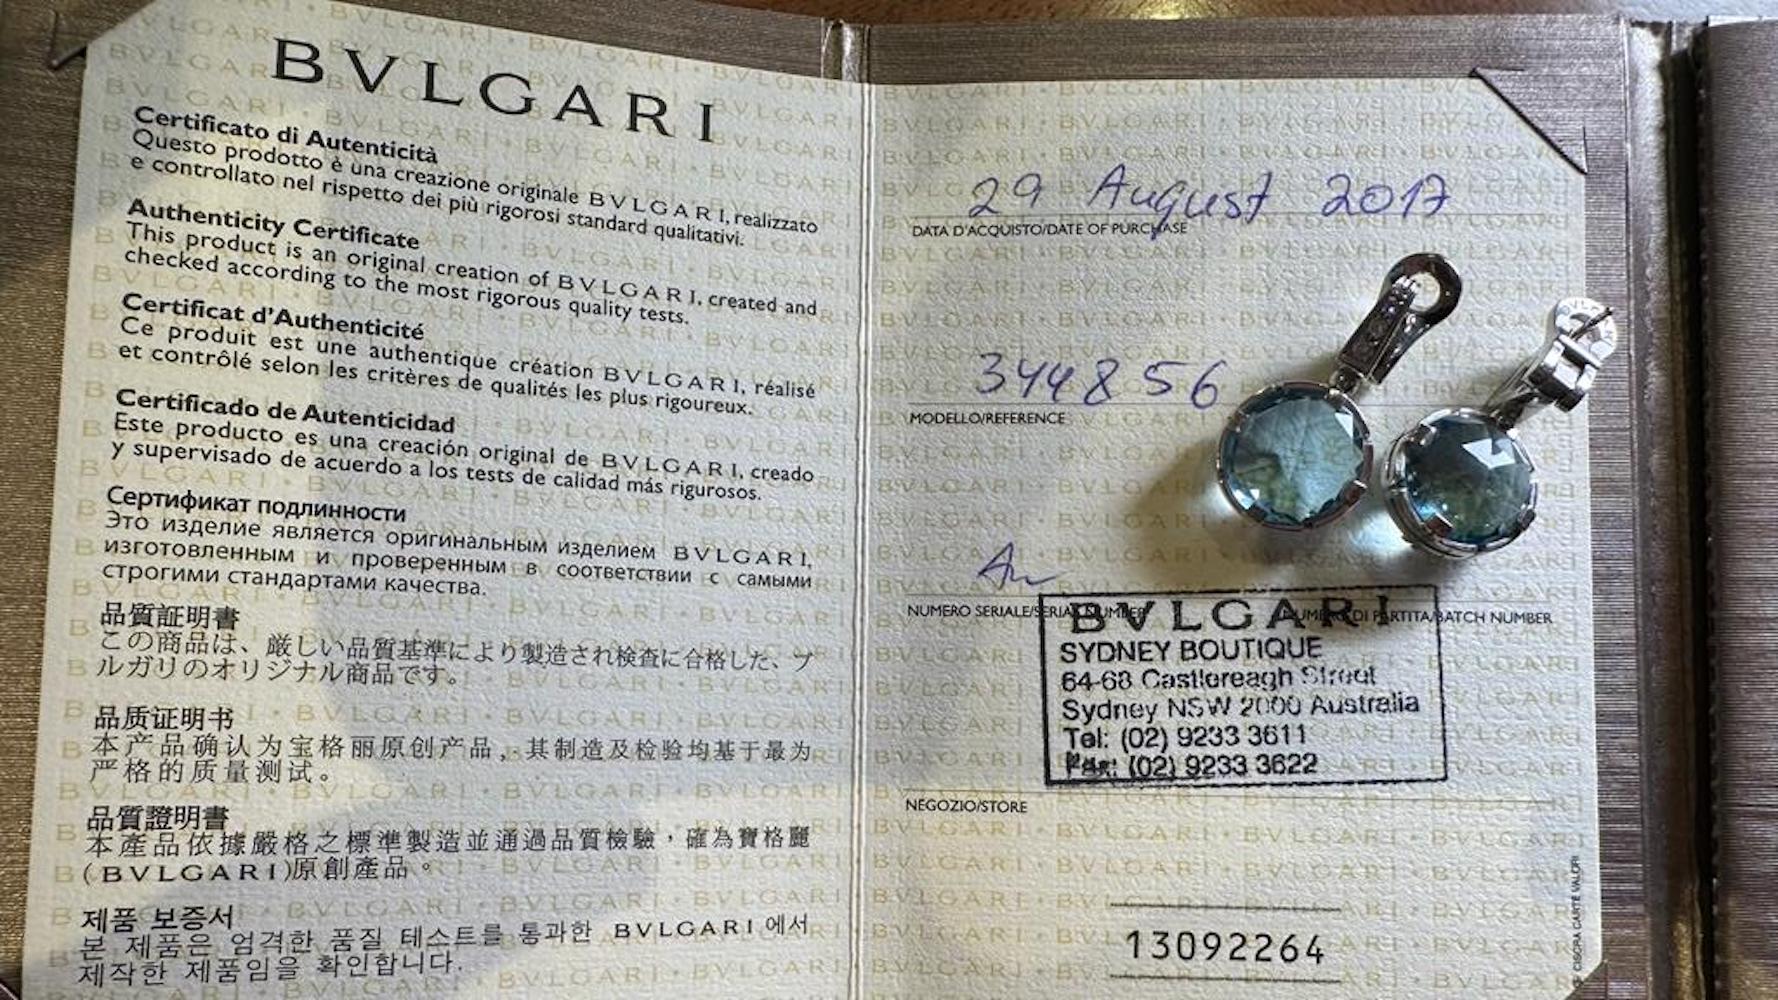 BVLGARI
Certificato di Autenticità
Questo prodotto è una creazione originale BVLGARI, realizzato
e controllato nel rispetto dei più rigorosi standard qualitativi.
Authenticity Certificate
This product is an original creation of BVLGARI, created and
checked according to the most rigorous quality tests.
Certificat d'Authenticité
Ce produit est une authentique création BVLGARI, réalisé
et contrôlé selon les critères de qualités les plus rigoureux.
Certificado de Autenticidad
Este producto es una creación original de BVLGARI, creado
y supervisado de acuerdo a los tests de calidad más rigurosos.
Сертификат подлинности
Это изделие является оригинальным изделием BVLGARI,
изготовленным и проверенным в соответствии с самыми
строгими стандартами качества.
品質証明書
この商品は、厳しい品質基準により製造され検査に合格した、ブ
ルガリのオリジナル商品です。
品质证明书
本产品确认为宝格丽原创产品，其制造及检验均基于最为
严格的质量测试。
品質證明書
本產品依據嚴格之標準製造並通過品質檢驗，確為寶格麗
(BVLGARI)原創產品。
제품 보증서
본 제품은 엄격한 품질 테스트를 통과한 BVLGARI 에서
제작한 제품임을 확인합니다.
29 August 2017
DATA D'ACQUISTO/DATE OF PURCHASE
344856
MODELLO/REFERENCE
NUMERO SERIALE/SERIAL NUMBER
NUMERO DI PARTITA/BATCH NUMBER
BVLGARI
SYDNEY BOUTIQUE
64-68 Castlereagh Street
Sydney NSW 2000 Australia
Tel: (02) 9233 3611
Fax: (02) 9233 3622
NEGOZIO/STORE
13092264
CISCRA CARTE VALORI